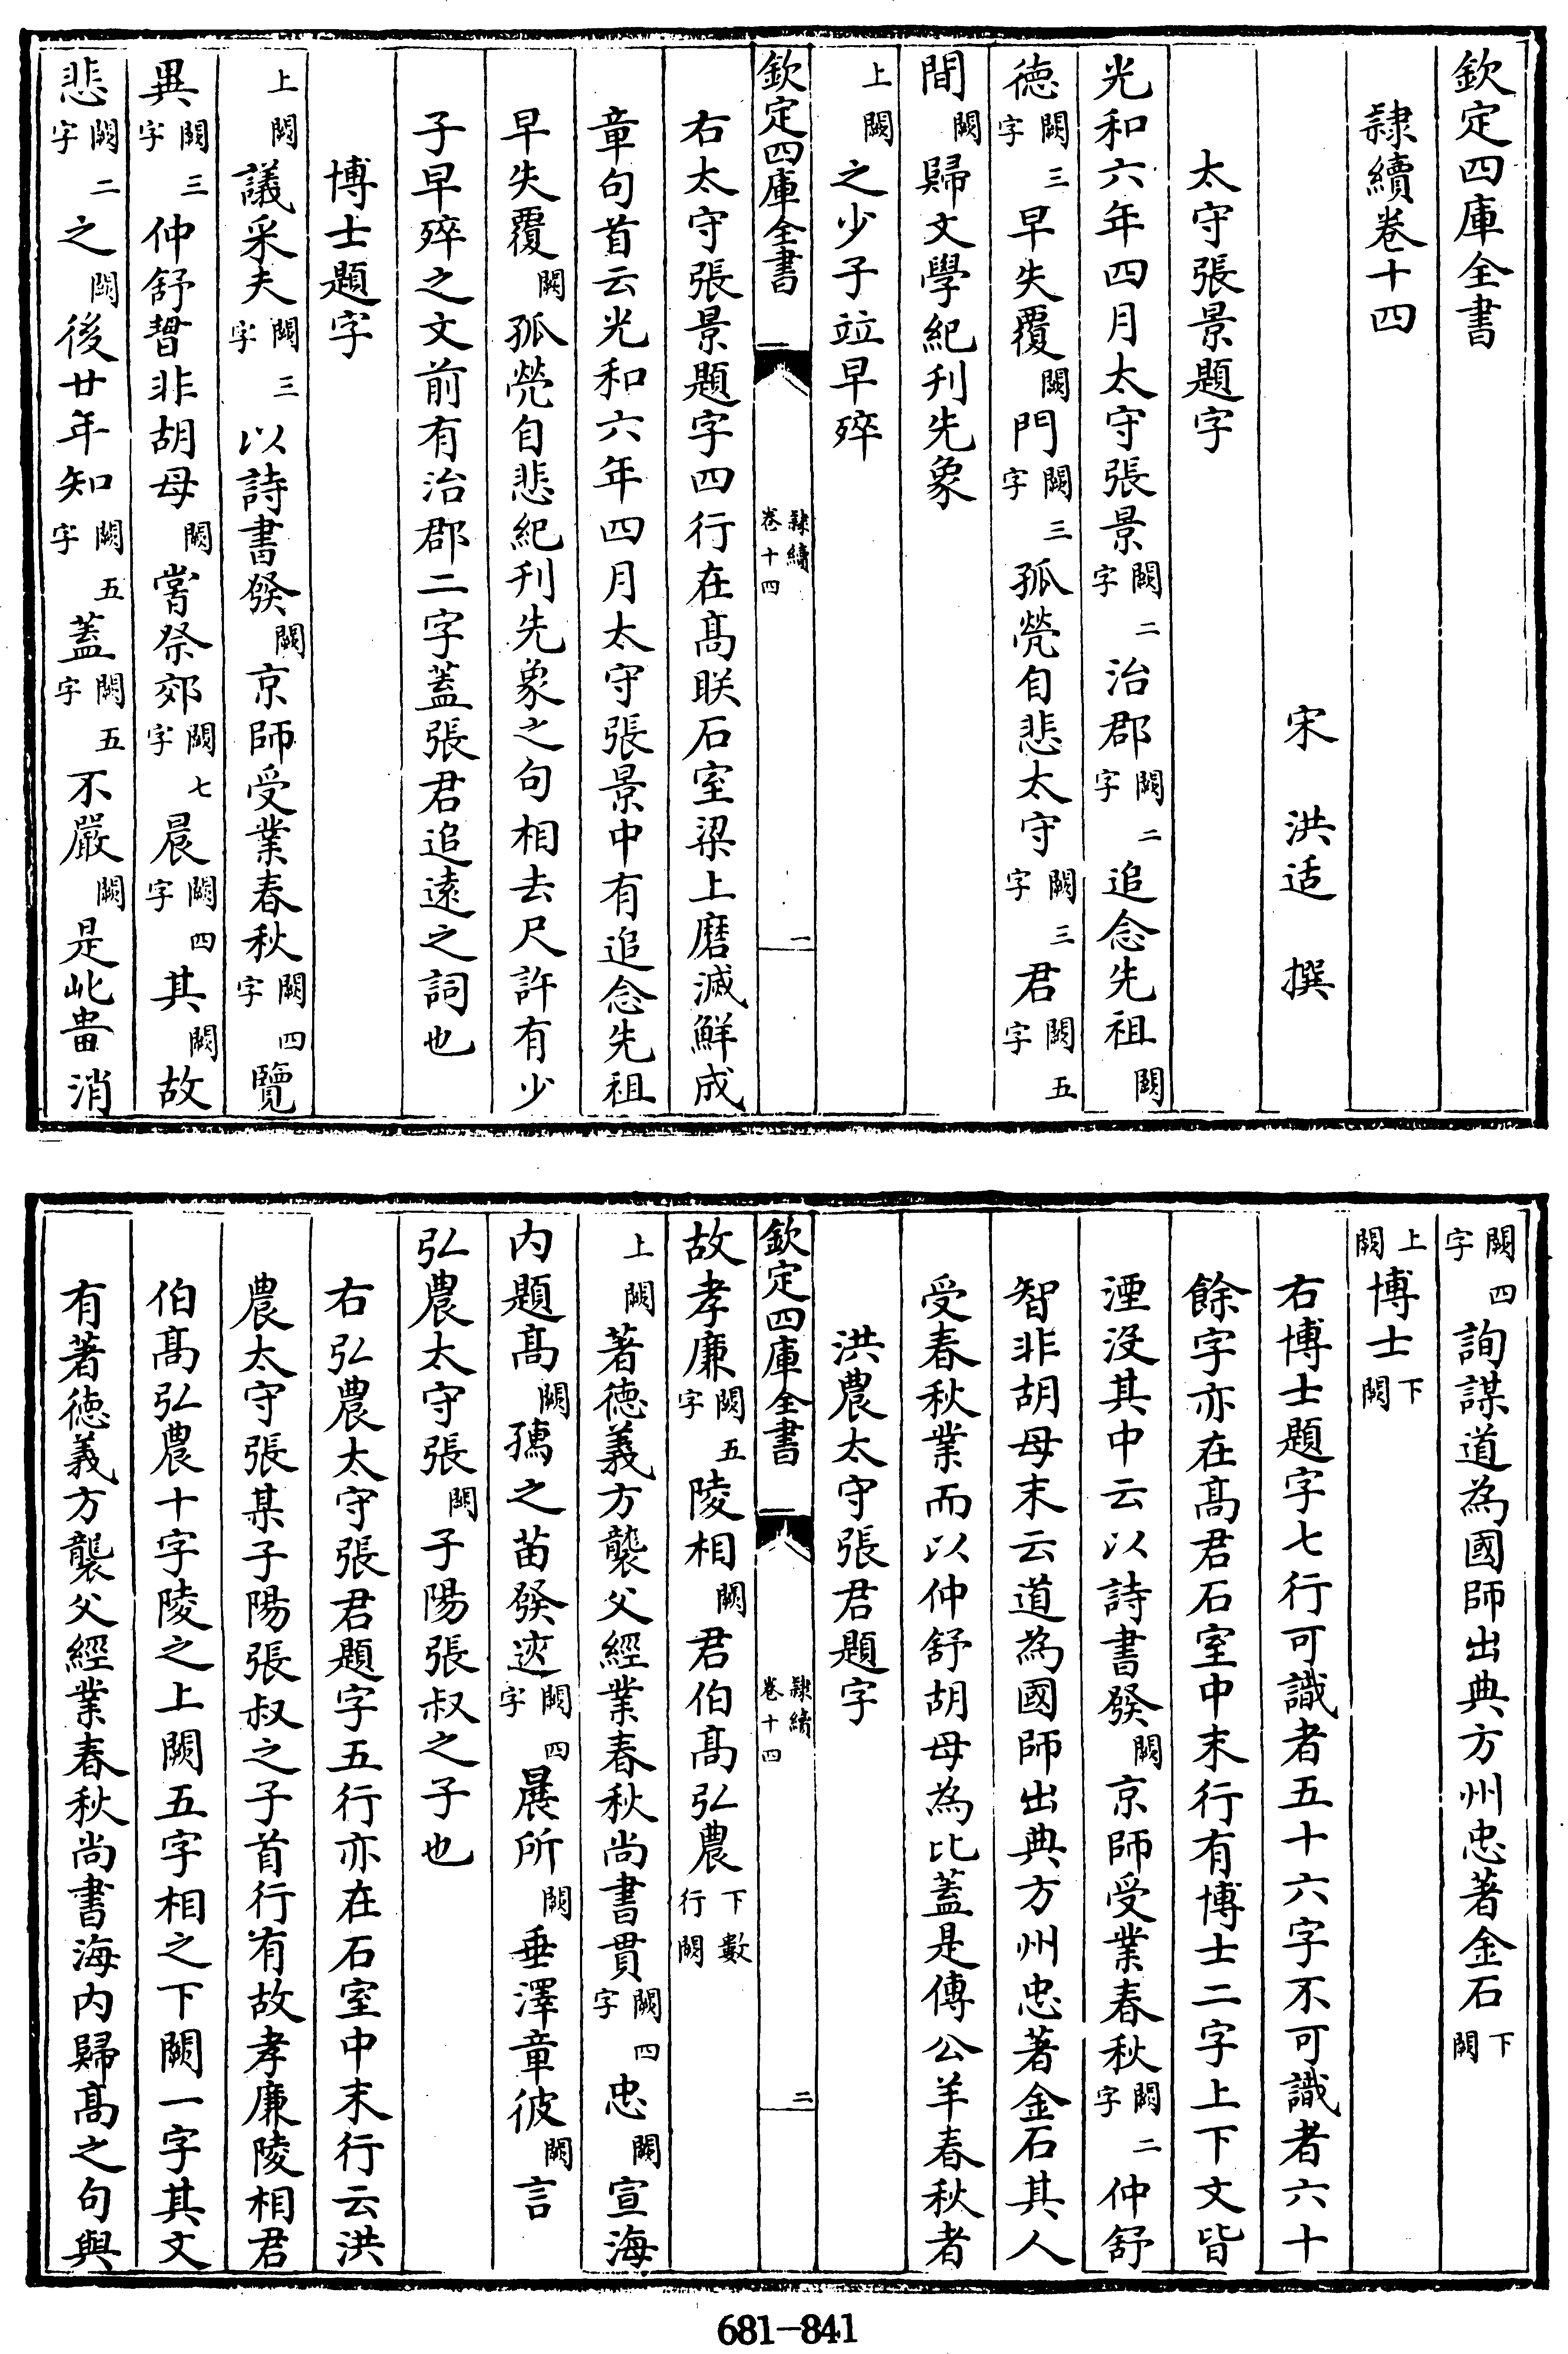 欽定四庫全書
隸續卷十四
宋 洪适 撰
太守張景題字
光和六年四月太守張景闕二字治郡闕二字追念先祖闕
徳闕三字早失覆闕門闕三字孤煢自悲太守闕三字君闕五字
間闕歸文學紀刋先象
上闕之少子竝早殁
欽定四庫全書 隸續卷十四 一
右太守張景題字四行在髙䀹石室梁上磨滅鮮成
章句首云光和六年四月太守張景中有追念先祖
早失覆闕孤煢自悲紀刋先象之句相去尺許有少
子早殁之文前有治郡二字蓋張君追逺之詞也
博士題字
上闕議采夫闕三字以詩書發闕京師受業春秋闕四字覽
異闕三字仲舒暜非胡母闕嘗祭郊闕七字晨闕四字其闕故
悲闕二字之闕後廿年知闕五字蓋闕五字不嚴闕是此畨消
闕四字詢謀道為國師出典方州忠著金石下闕
上闕博士下闕
右博士題字七行可識者五十六字不可識者六十
餘字亦在髙君石室中末行有博士二字上下文皆
湮沒其中云以詩書發闕京師受業春秋闕二字仲舒
智非胡母末云道為國師出典方州忠著金石其人
受春秋業而以仲舒胡母為比蓋是傳公羊春秋者
洪農太守張君題字
欽定四庫全書 隸續卷十四 二
故孝廉闕五字陵相闕君伯髙弘農下數行闕
上闕著徳義方襲父經業春秋尚書貫闕四字忠闕宣海
内題髙闕㺞之苗發迹闕四字展所闕垂澤章彼闕言
弘農太守張闕子陽張叔之子也
右弘農太守張君題字五行亦在石室中末行云洪
農太守張某子陽張叔之子首行有故孝廉陵相君
伯髙弘農十字陵之上闕五字相之下闕一字其文
有著徳義方襲父經業春秋尚書海内歸髙之句與
681-841